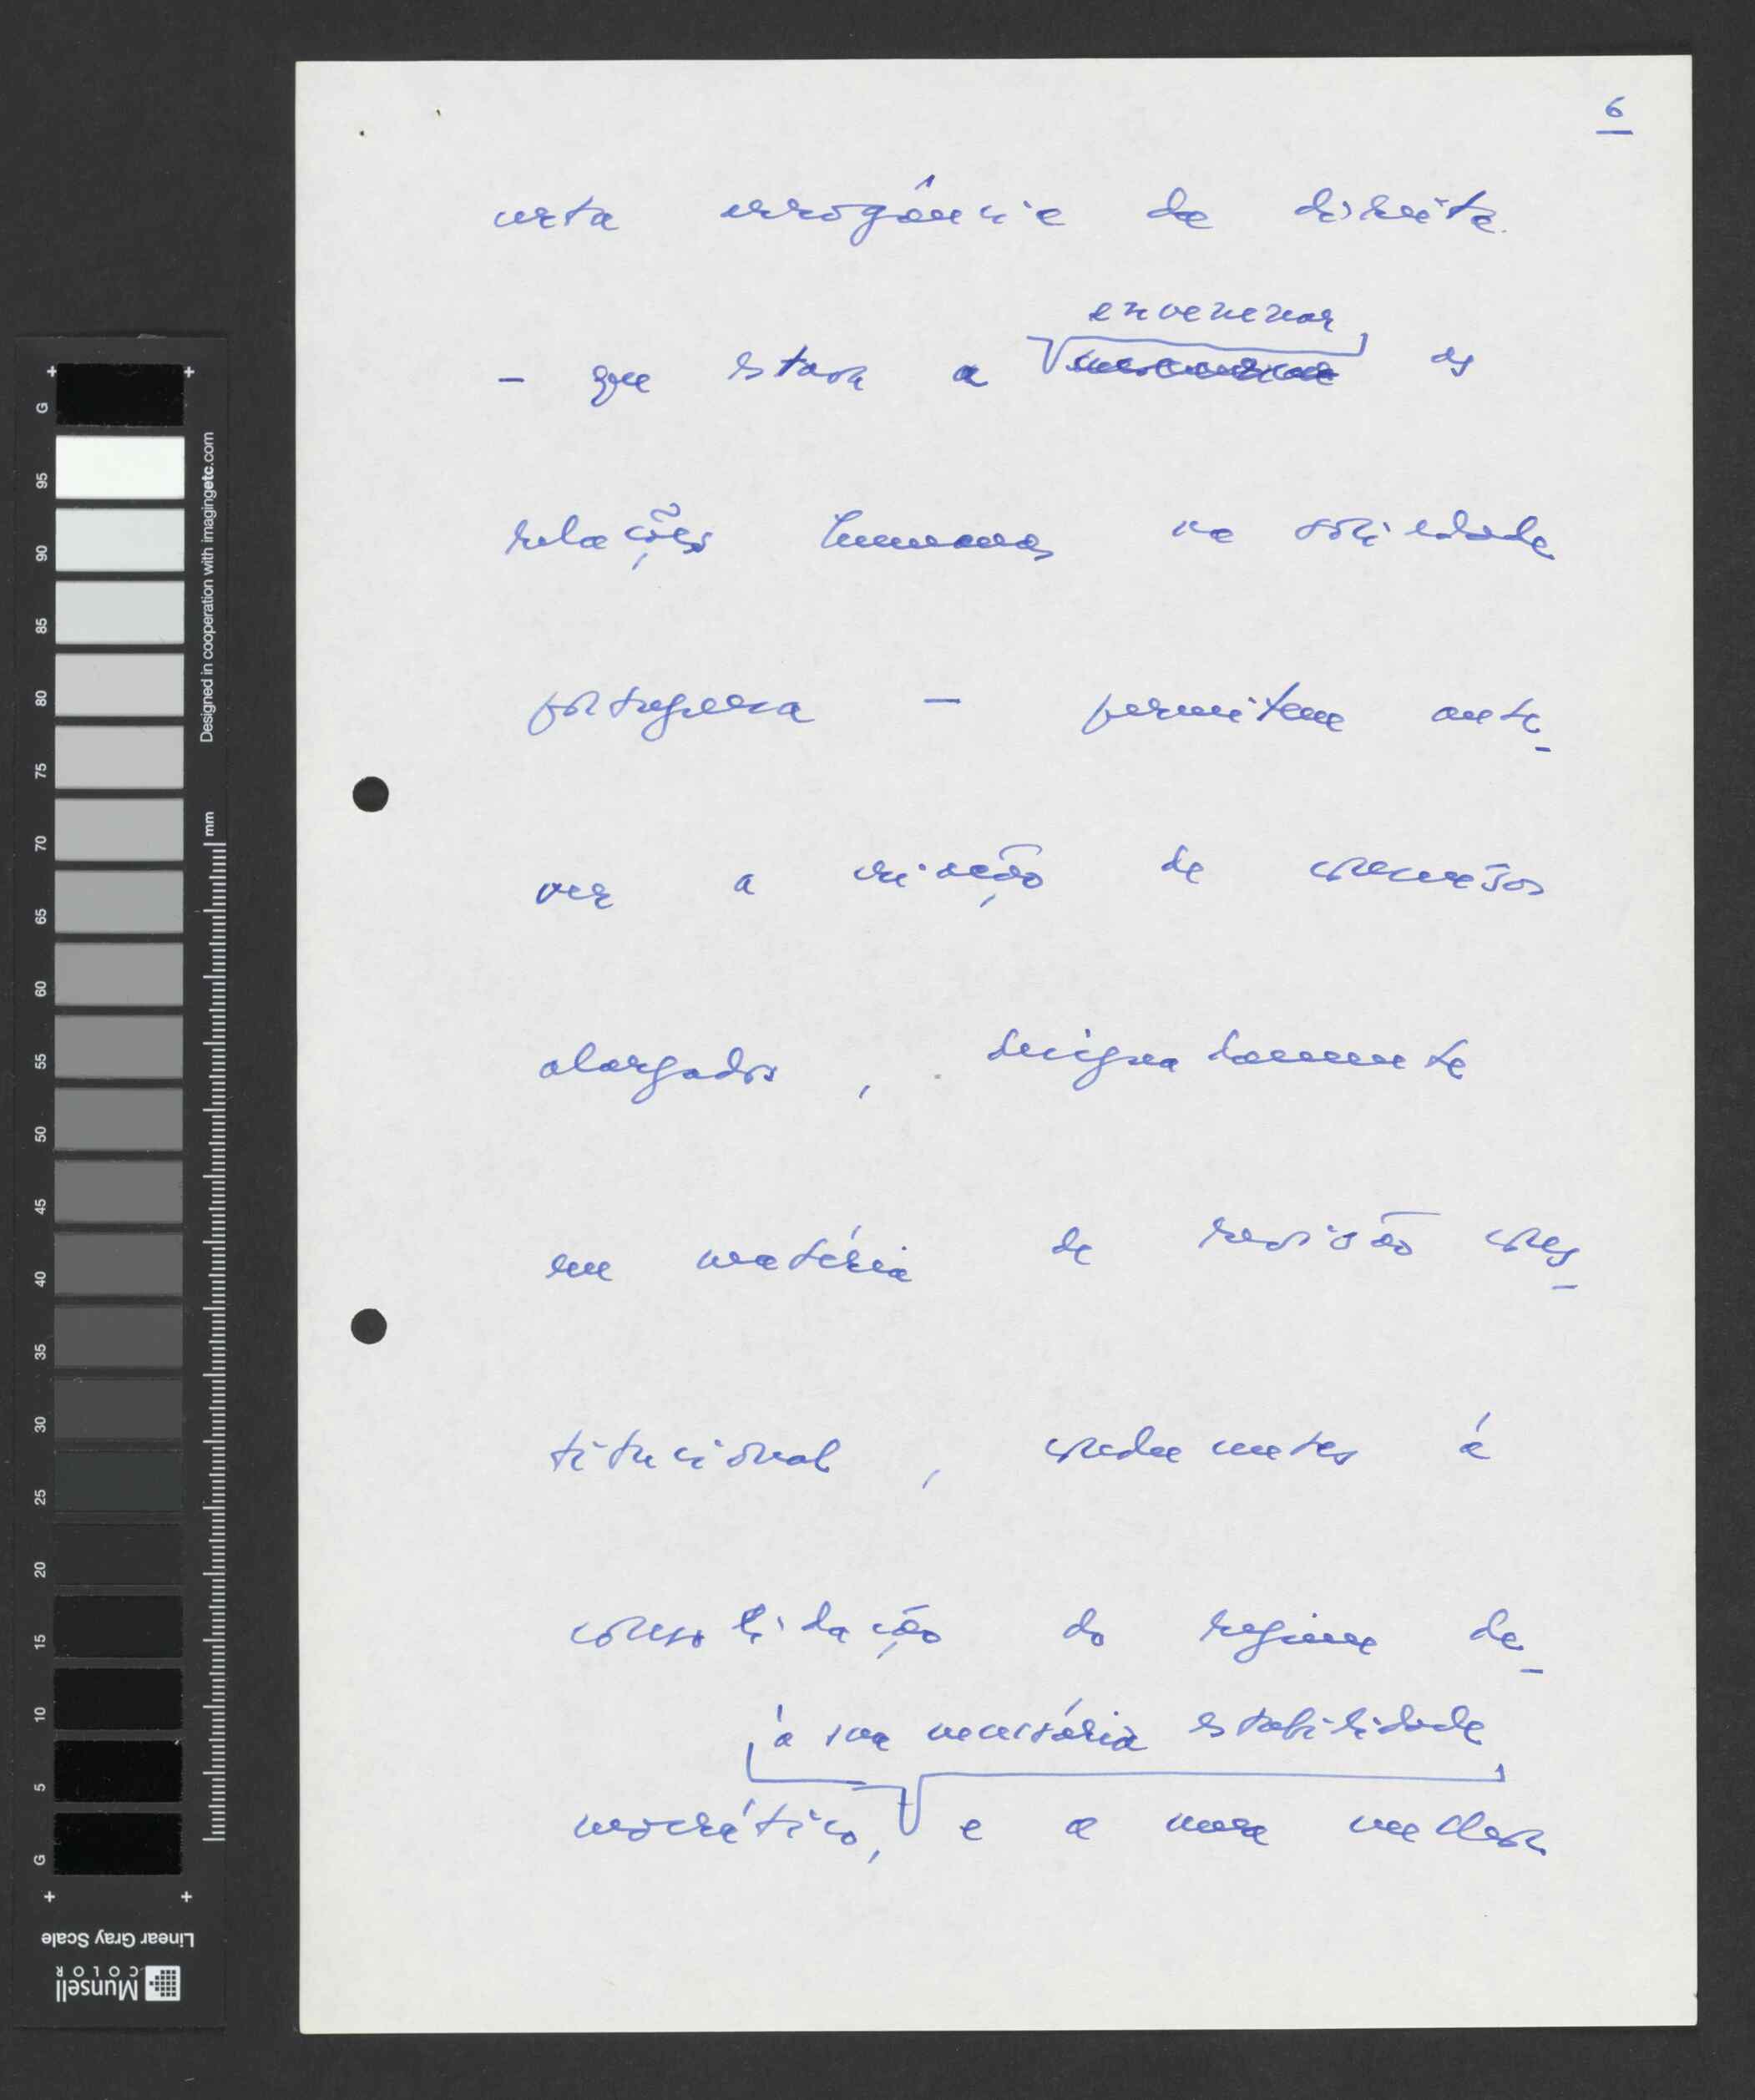 6
certa arrogância da direita
envenenar
– que estava a as
relações humanas na sociedade
portuguesa – permitem ante-
ver a criação de consensos
alargados, designadamente
em matéria de revisão cons-
titucional, conducentes à
consolidação do regime de-
à sua necessária estabilidade
mocrático, e a uma melhor
G
95
90
85
80
75
70
65
60
55
50
45
40
35
30
25
20
15
10
5
G
Designed in cooperation with imagingetc.com
mm
Linear Gray Scale
Munsell
COLOR